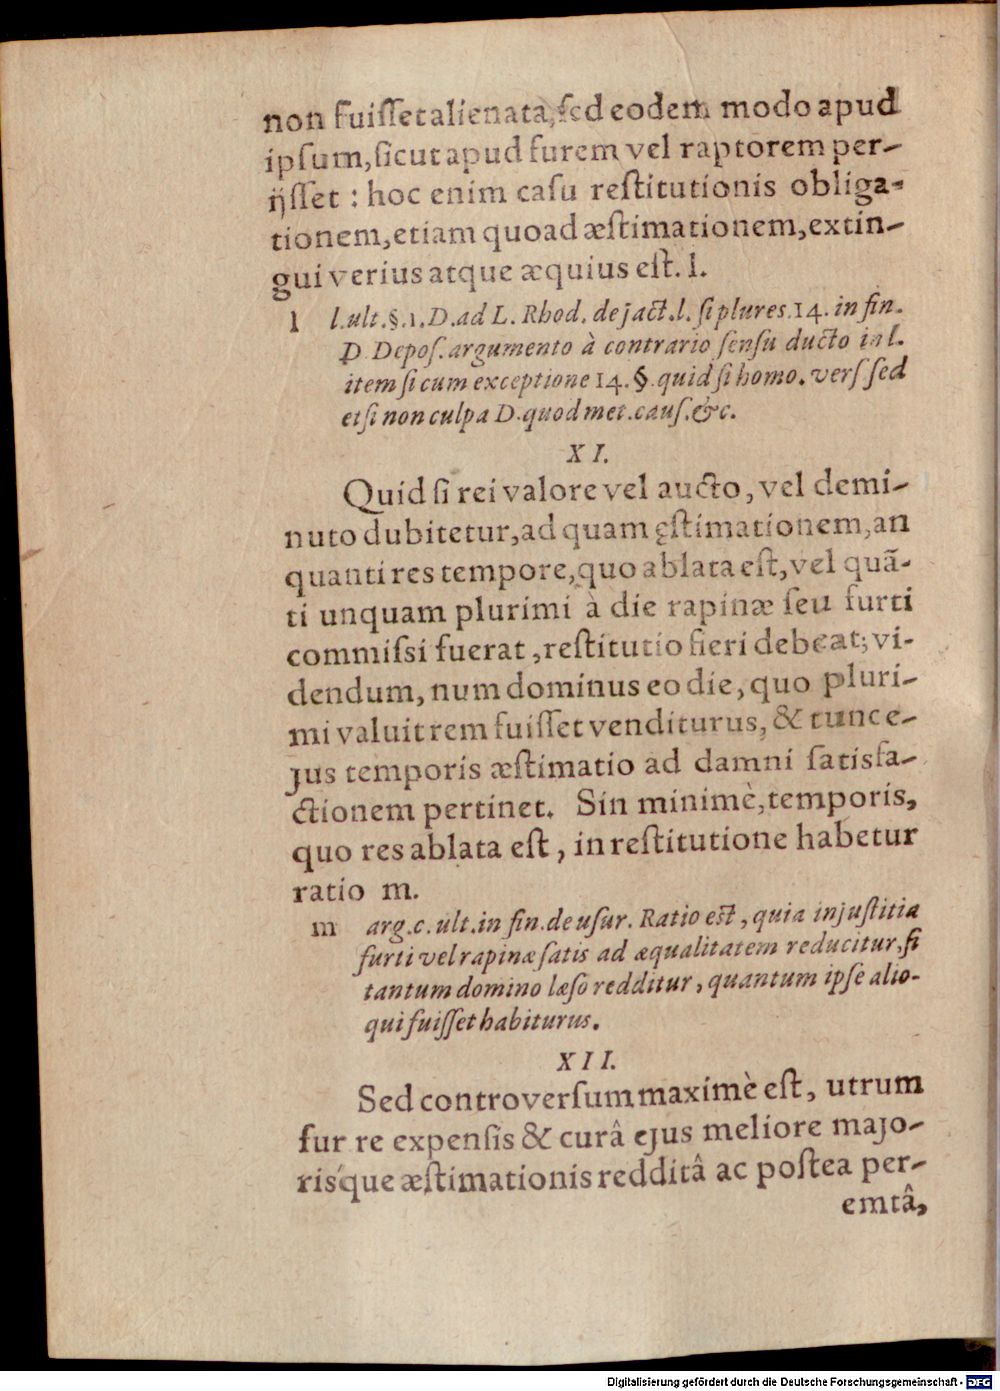 non fuiſſet alienata, ſed eodem modo apud
ipſum, ſicut apud furem vel raptorem per-
ijſſet : hoc enim caſu reſtitutionis obliga-
tionem, etiam quoad æſtimationem, extin-
gui verius atque æquius eſt. l.
l l. ult. §. 1. D. ad L. Rhod. de jact. l. ſi plures. 14. in fin.
D Depoſ. argumento à contrario ſenſu ducto in l.
item ſi cum exceptione 14. §. quid ſi homo. verſ ſed
et ſi non culpa D. quod met. cauſ. &c.
XI.
Quid ſi rei valore vel aucto, vel demi-
nuto dubitetur, ad quam ęſtimationem, an
quanti res tempore, quo ablata eſt, vel quã-
ti unquam plurimi à die rapinæ ſeu furti
commiſsi fuerat, reſtitutio fieri debeat; vi-
dendum, num dominus eo die, quo pluri-
mi valuit rem fuiſſet venditurus, & tunc e-
jus temporis æſtimatio ad damni ſatisfa-
ctionem pertinet. Sin minimè, temporis,
quo res ablata eſt, in reſtitutione habetur
ratio m.
m arg. c. ult. in fin. de uſur. Ratio eſt, quia injuſtitia
furti vel rapinæ ſatis ad æqualitatem reducitur, ſi
tantum domino læſo redditur, quantum ipſe alio-
qui fuiſſet habiturus.
XII.
Sed controverſum maximè eſt, utrum
fur re expenſis & curâ ejus meliore majo-
risque æſtimationis redditâ ac poſtea per-
emtâ,
Digitalisierung gefördert durch die Deutsche Forschungsgemeinschaft - DFG